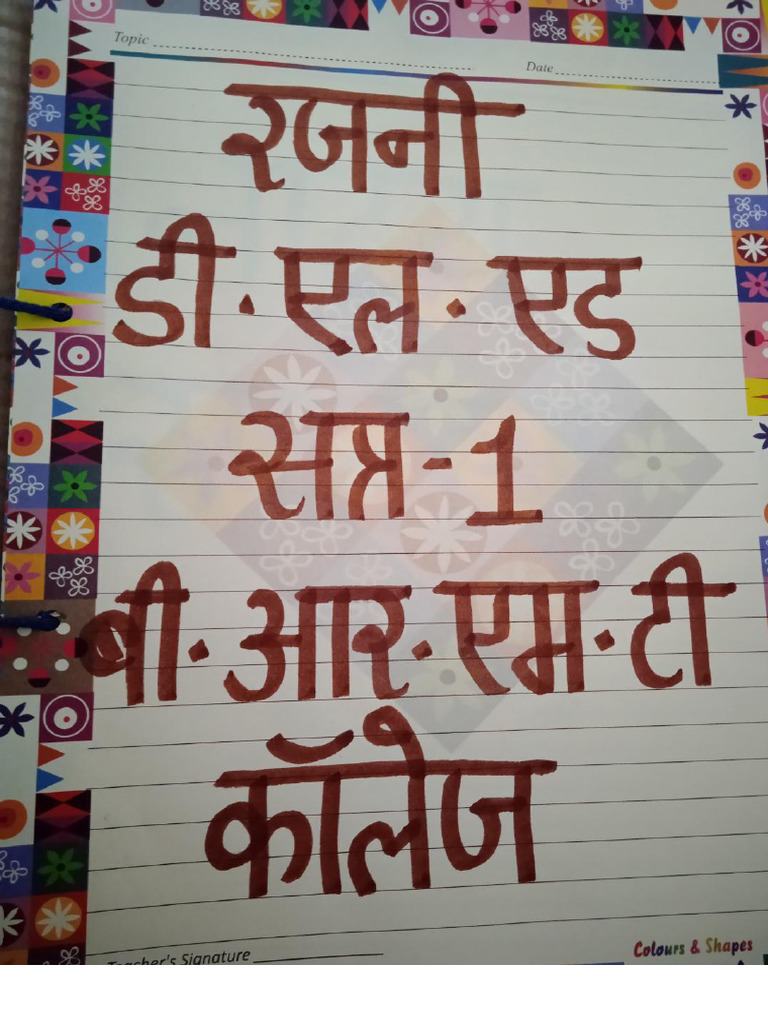 Topic
Date
रजनी
डी. एल. एड
सत्र-1
बी. आर. एम. टी
कॉलेज
Teacher's Signature
Colours & Shapes